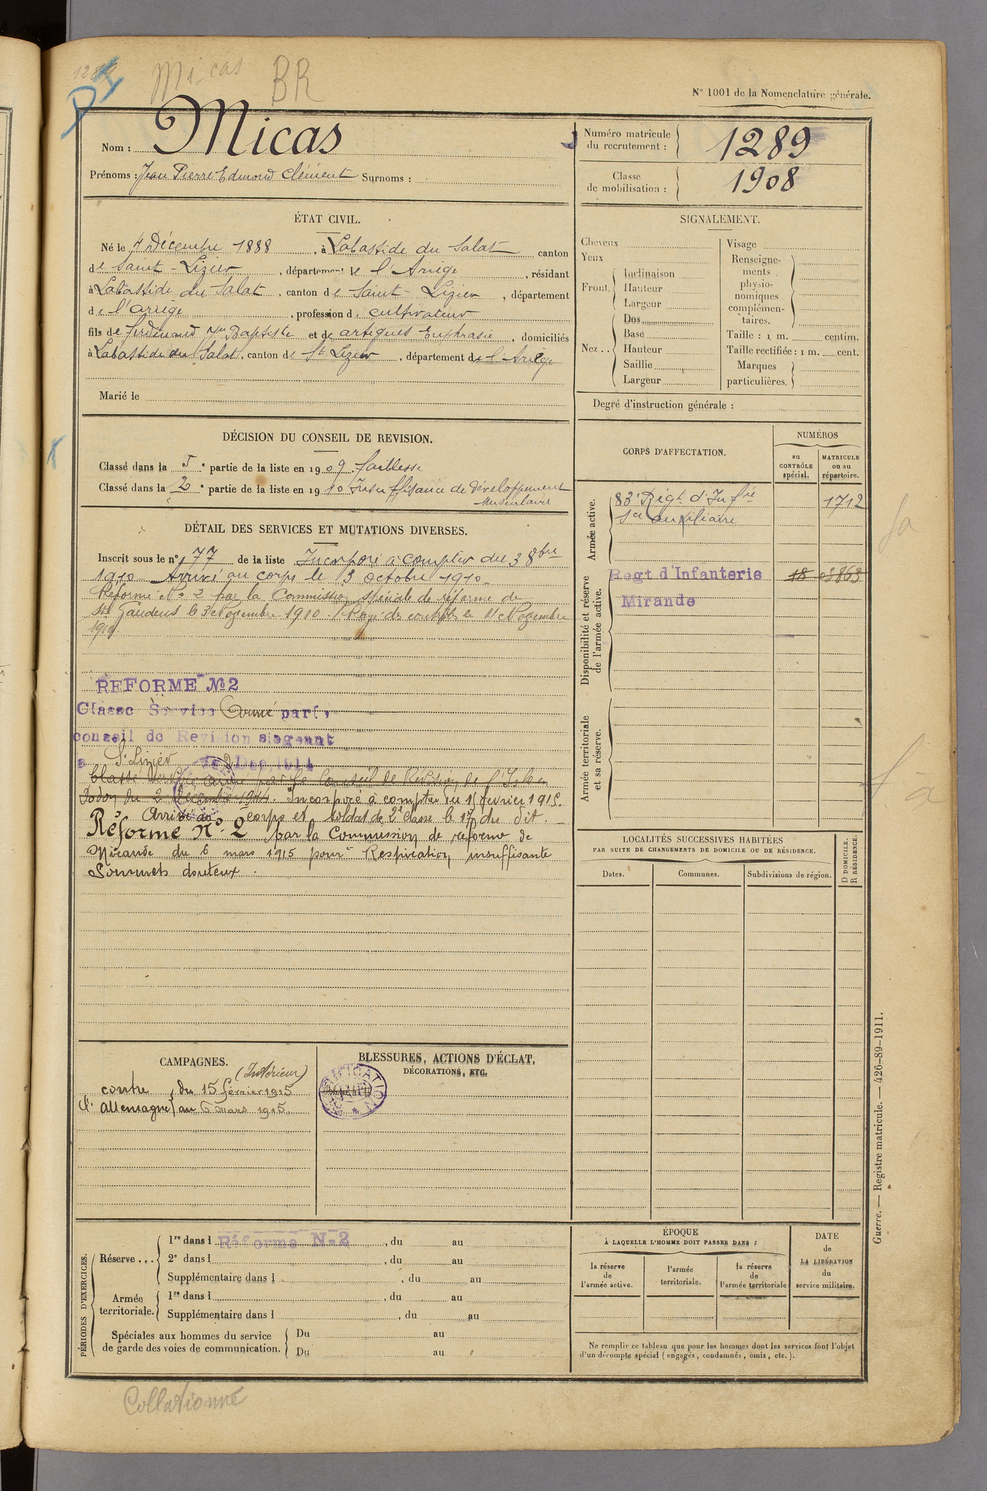 Micas BR
N° 1001 de la Nomenclature générale.
Nom : Micas
Prénoms : Jean Pierre Edmond Clément Surnoms :
Numéro matricule du recrutement : 1289
Classe de mobilisation : 1908
ÉTAT CIVIL.
Né le 7 Décembre 1888, à Labastide du Salat canton
de Saint-Lizier, département de l'Ariège, résidant
à Labastide du Salat, canton de Saint-Lizier, département
de l'ariège, profession de cultivateur
fils de Ferdinand Jn Baptiste et de artigues Euphrasie, domiciliés
à Labastide du Salat, canton de St Lizier, département de l'Ariège
Marié le
SIGNALEMENT.
Cheveux
Yeux
Front. Inclinaison
Hauteur
Largeur
Nez.. Dos
Base
Hauteur
Saillie
Largeur
Visage
Renseignements physionomiques complémentaires.
Taille : 1 m. centim.
Taille rectifiée : 1 m. cent.
Marques particulières.
Degré d'instruction générale :
DÉCISION DU CONSEIL DE REVISION.
Classé dans la 5e partie de la liste en 1909 faiblesse
Classé dans la 2e partie de la liste en 1910 Insuffisance de développement
musculaire
DÉTAIL DES SERVICES ET MUTATIONS DIVERSES.
Inscrit sous le n° 77 de la liste Incorporé à compter du 3 8bre
1910 Arrivé au corps le 3 octobre 1910.
Réformé N° 2 par la Commission spéciale de réforme de
St Gaudens le 3 Novembre 1910. Rayé des contrôles le 11 Novembre
1910.
REFORME No2
Classe Service Armé par le
conseil de Revision siegeant
a St Lizier le 2 Dec 1914
Classé service armé par le Conseil de Révision de
du 2 Décembre 1914. Incorporé à compter du 15 février 1915.
Arrivé au corps et soldat de 2e classe le 17 du dit.
Réformé N° 2 par la Commission de réforme de
Mirande du 6 mars 1915 pour "Respiration insuffisante
Sommets douteux.
CORPS D'AFFECTATION.
NUMÉROS
au CONTRÔLE spécial.
MATRICULE ou au répertoire.
Armée active.
83e Régt d'Infrie 1712
Son auxiliaire
Disponibilité et réserve de l'armée active.
Regt d'Infanterie 18 03863
Mirande
Armée territoriale et sa réserve.
LOCALITÉS SUCCESSIVES HABITÉES
PAR SUITE DE CHANGEMENTS DE DOMICILE OU DE RÉSIDENCE.
Dates. Communes. Subdivisions de région.
D DOMICILE. R RÉSIDENCE.
CAMPAGNES.
(Intérieur)
contre du 15 février 1915
l'Allemagne au 6 mars 1915.
BLESSURES, ACTIONS D'ÉCLAT,
DÉCORATIONS, ETC.
PÉRIODES D'EXERCICES.
Réserve... 1re dans l Réforme N-2, du au
2e dans l, du au
Supplémentaire dans l, du au
Armée territoriale. 1re dans l, du au
Supplémentaire dans l, du au
Spéciales aux hommes du service de garde des voies de communication. Du au
Du au
ÉPOQUE
À LAQUELLE L'HOMME DOIT PASSER DANS :
la réserve de l'armée active.
l'armée territoriale.
la réserve de l'armée territoriale
DATE de LA LIBÉRATION du service militaire.
Ne remplir ce tableau que pour les hommes dont les services font l'objet
d'un décompte spécial (engagés, condamnés, omis, etc.).
Guerre. — Registre matricule. — 426-89-1911.
Collationné